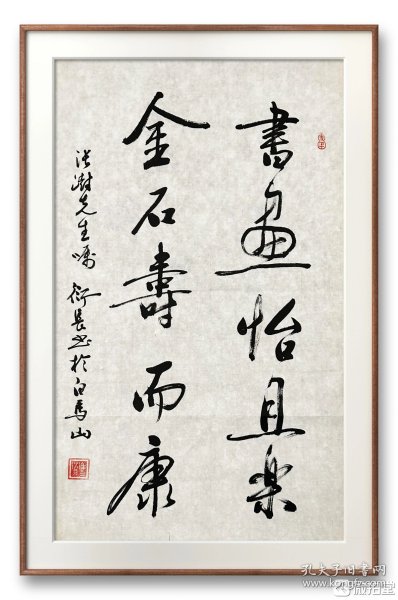 書画怡且樂
金石壽而康
張澍先生嘱 衍長书於白馬山
孔夫子旧书网
www.kongfz.com
微拍堂